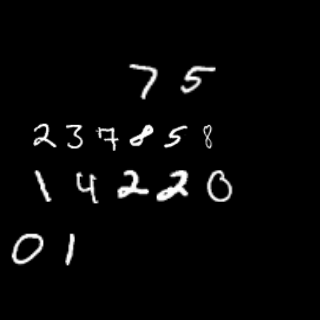 75
237858
14220
01